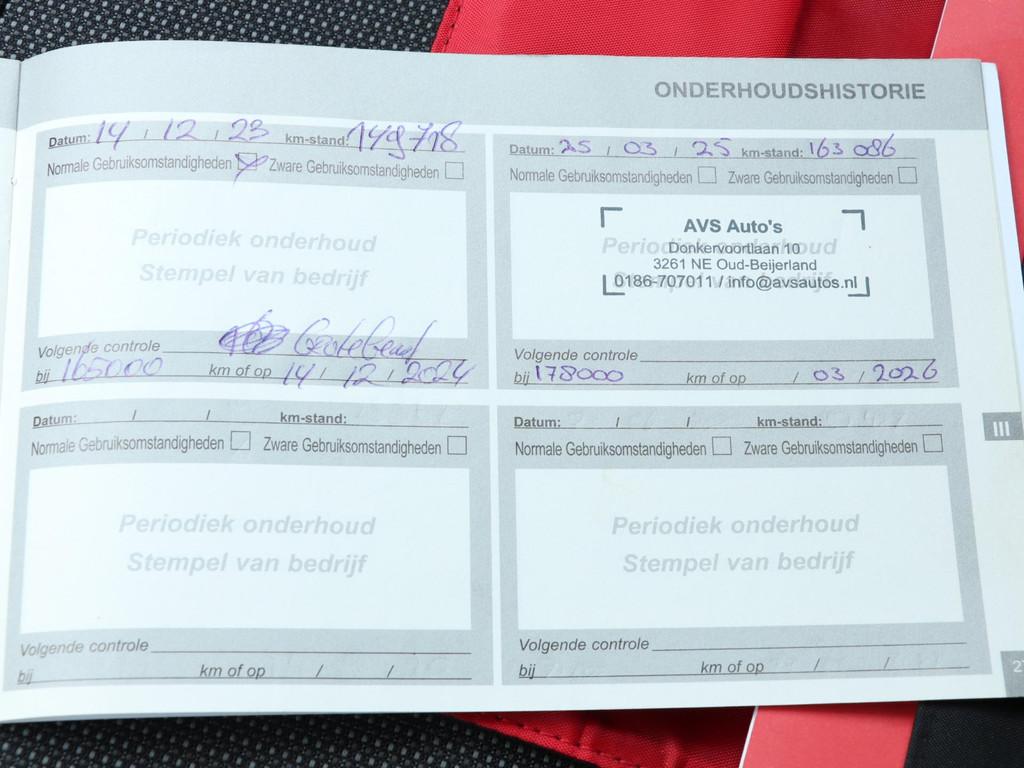 ONDERHOUDSHISTORIE
Datum: 14 / 12 / 23 km-stand: 149718
Normale Gebruiksomstandigheden Zware Gebruiksomstandigheden
Periodiek onderhoud
Stempel van bedrijf
Volgende controle
bij 165000 km of op 14 / 12 / 2024
Datum: 25 / 03 / 25 km-stand: 163 086
Normale Gebruiksomstandigheden Zware Gebruiksomstandigheden
Periodiek onderhoud
Stempel van bedrijf
AVS Auto's
Donkervoortlaan 10
3261 NE Oud-Beijerland
0186-707011 / info@avsautos.nl
Volgende controle
bij 178000 km of op / 03 / 2026
Datum: / / km-stand:
Normale Gebruiksomstandigheden Zware Gebruiksomstandigheden
Periodiek onderhoud
Stempel van bedrijf
Volgende controle
bij km of op / /
Datum: / / km-stand:
Normale Gebruiksomstandigheden Zware Gebruiksomstandigheden
Periodiek onderhoud
Stempel van bedrijf
Volgende controle
bij km of op / /
III